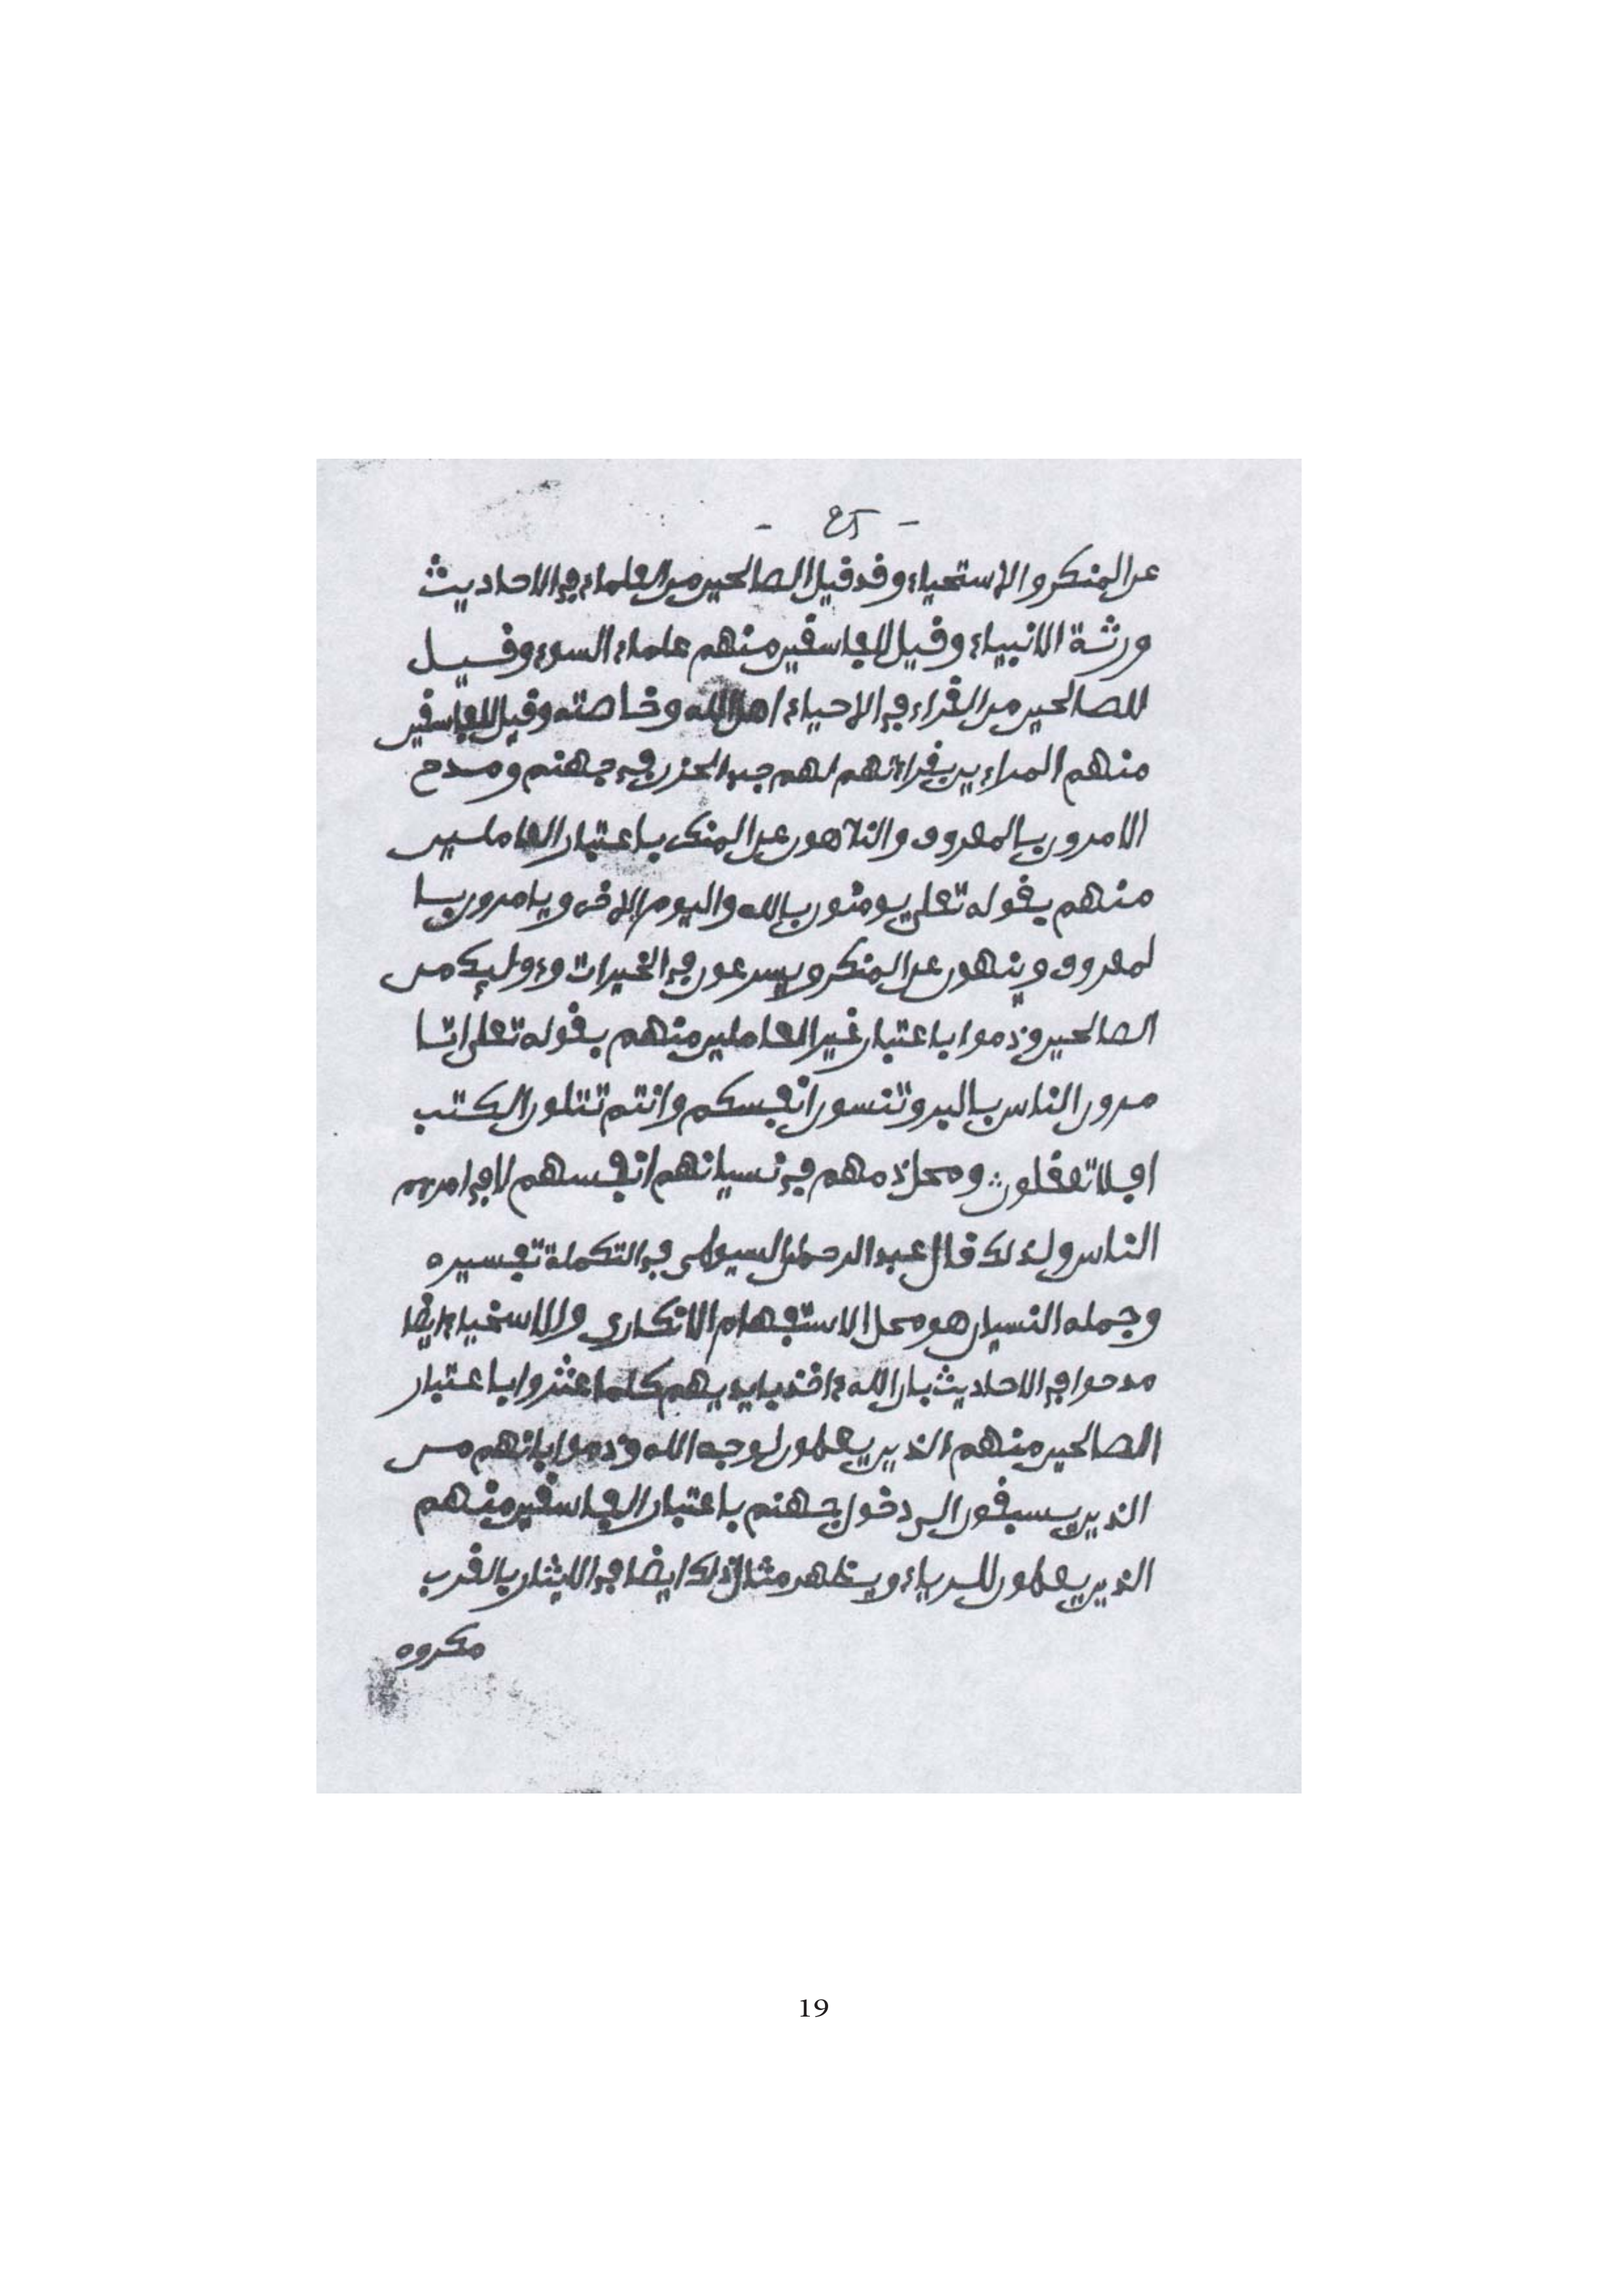 - ٤٥ -
عن المنكر والاستحياء وقد قيل الصالحين من العلماء في الاحاديث
ورثة الانبياء وقيل للفاسقين منهم علماء السوء وقيل
للصالحين من القراء في الاحياء اهل الله وخاصته وقيل للفاسقين
منهم المراءين بقراءتهم لهم جب الحزن في جهنم ومدح
الامرون بالمعروف والناهون عن المنكر باعتبار العاملين
منهم بقوله تعلى يومنون بالله واليوم الاخر ويامرون با
لمعروف وينهون عن المنكر ويسرعون في الخيرات وءولىِٕك من
الصالحين وذموا باعتبار غير العاملين منهم بقوله تعلى اتا
مرون الناس بالبر وتنسون انفسكم وانتم تتلون الكتب
افلا تعقلون ومحل ذمهم في نسيانهم انفسهم لا في امرهم
الناس ولذلك قال عبد الرحمن السيوطي في التكملة تفسيره
وجمله النسيان هو محل الاستفهام الانكاري والاسخياء ايضا
مدحوا في الاحاديث بان الله ءاخذ بايديهم كلما عثروا باعتبار
الصالحين منهم الذين يعملون لوجه الله وذموا بانهم من
الذين يسبقون الى دخول جهنم باعتبار الفاسقين منهم
الذين يعملون للرياء ويظهر مثال ذلك ايضا في الايثار بالقرب
مكروه
19